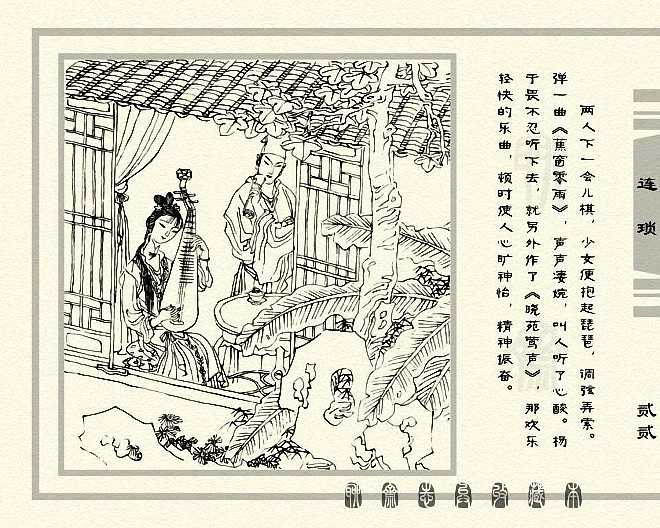 两人下一会儿棋，少女便抱起琵琶，调弦弄索。
弹一曲《蕉窗零雨》，声声凄婉，叫人听了心酸。杨
于畏不忍听下去，就另外作了《晓苑莺声》，那欢乐
轻快的乐曲，顿时使人心旷神怡，精神振奋。
连琐
贰贰